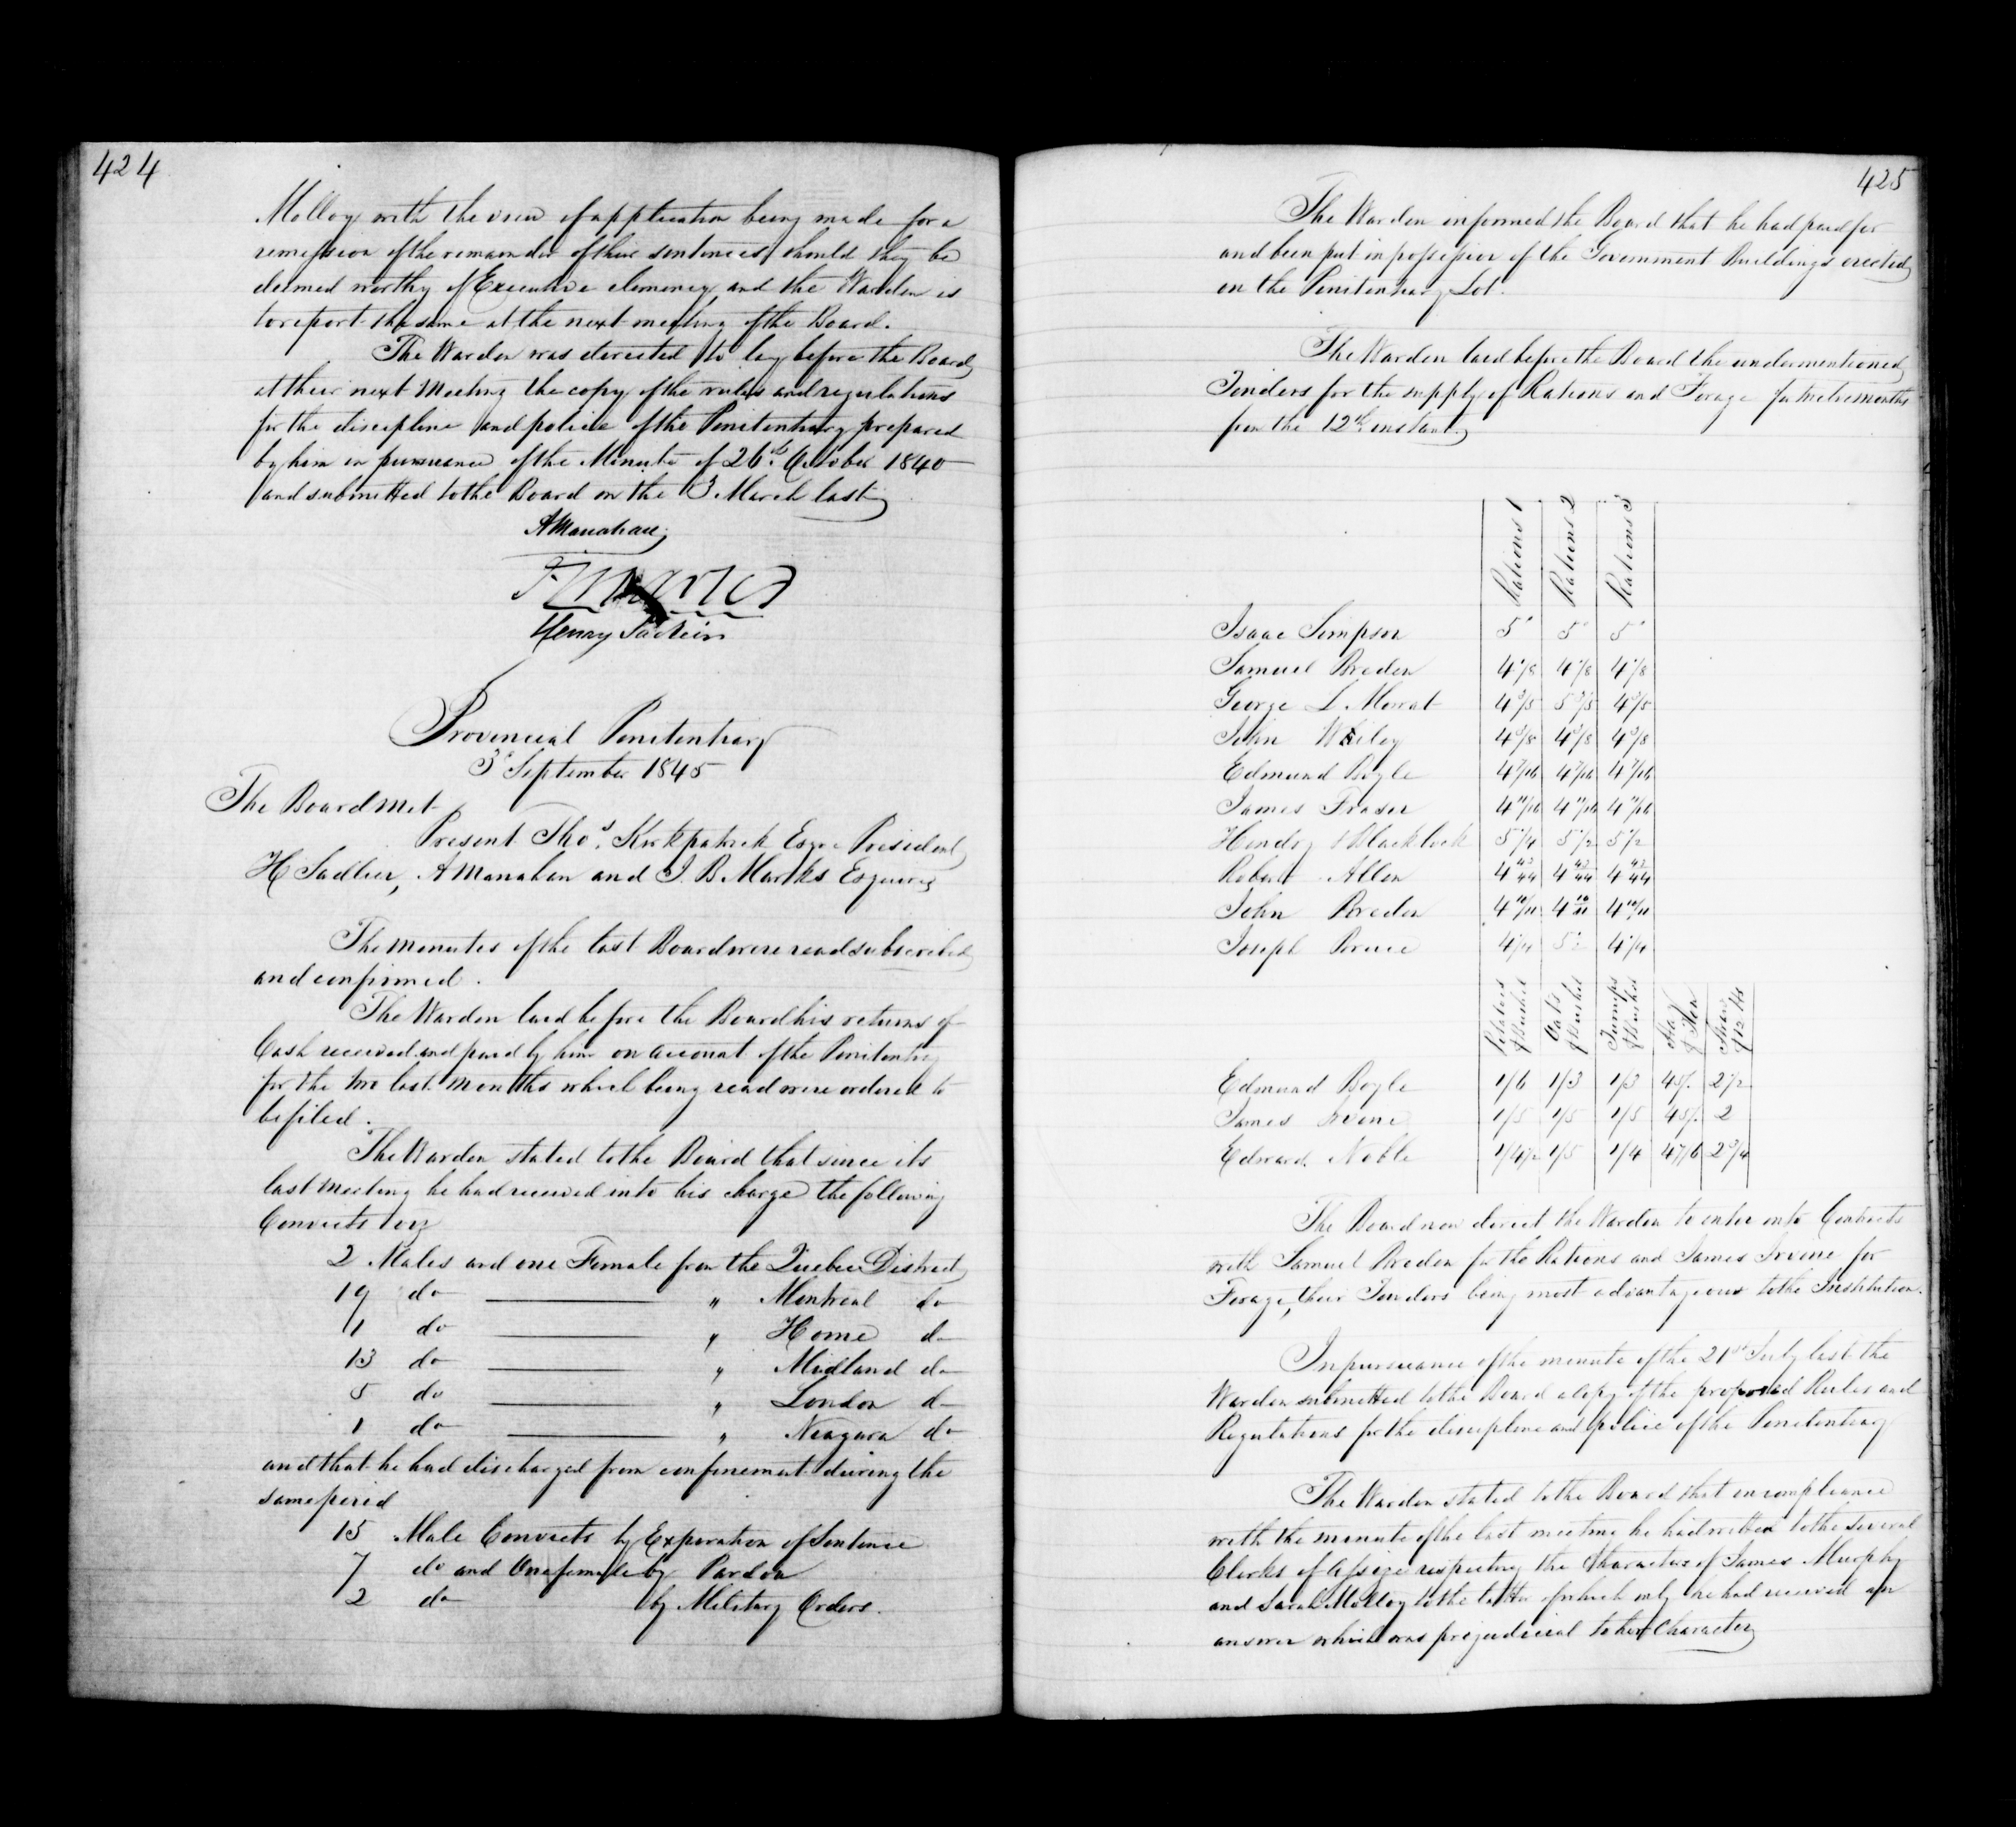 424
Molloy with the view of application being made for a
remission of the remainder of their sentences should they be
deemed worthy of Executive clemency and the Warden is
to report the same at the next meeting of the Board.
The Warden was directed to lay before the Board
at their next Meeting the copy of the rules and regulations
for the discipline and police of the Penitentiary prepared
by him in pursuance of the Minute of 26th October 1840
and submitted to the Board on the 3 March last
AManahan
Henry Sadleir
Provincial Penitentiary
3d September 1845
The Board met
Present Thos. Kirkpatrick Esqre President
H Sadlier, A Manahan and J. B. Marks Esquires
The minutes of the last Board were read subscribed
and confirmed.
The Warden laid before the Board his returns of
Cash received and paid by him on account of the Penitentiary
for the two last months which being read were ordered to
be filed.
The Warden stated to the Board that since its
last meeting he had received into his charge the following
Convicts viz
2 Males and one Female from the Quebec District
19 do " Montreal do
1 do " Home do
13 do " Midland do
5 do " London do
1 do " Niagara do
and that he had discharged from confinement during the
same period
15 Male Convicts by Expiration of Sentence
7 do and One female by Pardon
2 do by Military Orders.
425
The Warden informed the Board that he had paid for
and been put in possession of the Government Buildings erected
on the Penitentiary Lot.
The Warden laid before the Board the undermentioned
Tenders for the supply of Rations and Forage for twelve months
from the 12th instant
Rations 1 Rations 2 Rations 3
Isaac Simpson 5 5 5
Samuel Breden 4 1/8 4 1/8 4 1/8
George L Mowat 4 3/5 5 3/5 4 3/5
John Wiley 4 3/8 4 3/8 4 3/8
Edmund Boyle 4 7/16 4 7/16 4 7/16
James Fraser 4 11/16 4 11/16 4 11/16
Hendry & Blacklock 5 1/4 5 1/2 5 1/2
Robert Allen 4 43/44 4 43/44 4 43/44
John Breden 4 10/11 4 10/11 4 10/11
Joseph Bruce 4 1/4 5 4 1/4
Potatoes Bushel Oats Bushel Turnips Bushel Hay Ton Straw 12 lbs
Edmund Boyle 1/6 1/3 1/3 45/. 2 1/2
James Irvine 1/5 1/5 1/5 45/. 2
Edward Noble 1/4 1/2 1/5 1/4 47/6 2 3/4
The Board now direct the Warden to enter into Contracts
with Samuel Breden for the Rations and James Irvine for
Forage, their Tenders being most advantageous to the Institution.
In pursuance of the minute of the 21st July last the
Warden submitted to the Board a copy of the proposed Rules and
Regulations for the discipline and police of the Penitentiary
The Warden stated to the Board that in compliance
with the minute of the last meeting he had written to the several
Clerks of Assize respecting the Character of James Murphy
and Sarah Molloy to the latter of which only he had received an
answer which was prejudicial to her Character